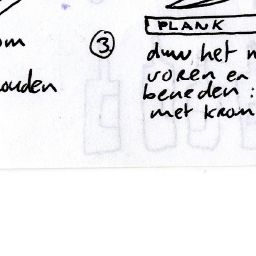 om
ouden
3
PLANK
duw het
voren en
beneden:
met krom